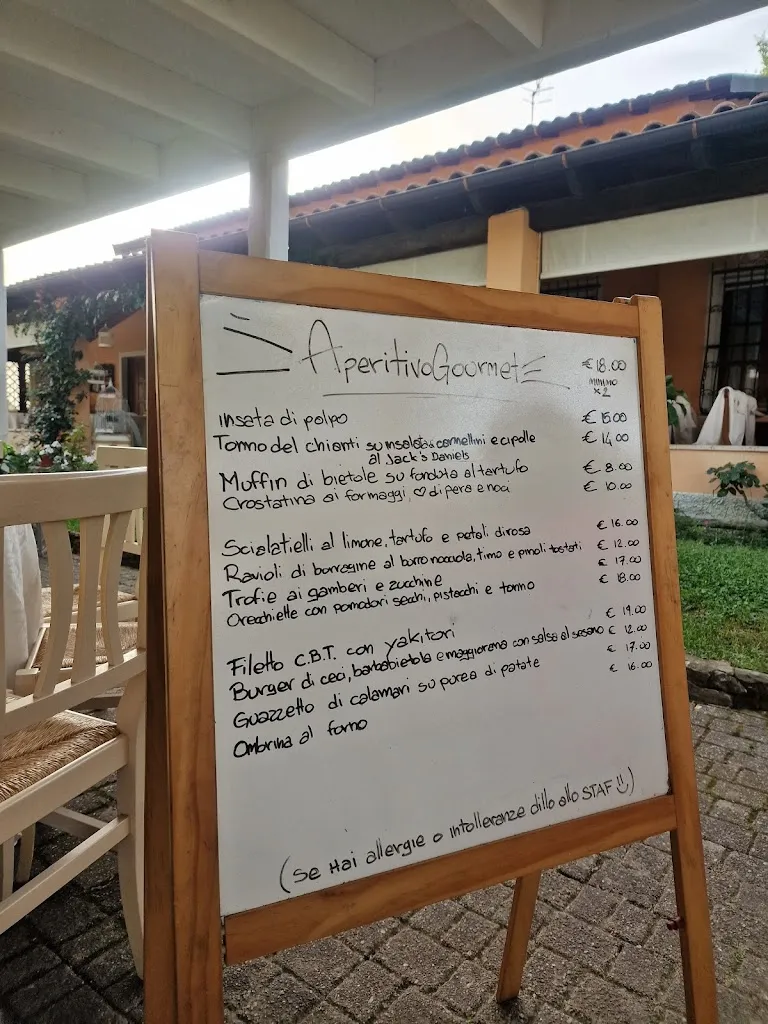 AperitivoGourmet €18.00
MINIMO
x2
insata di polpo € 15.00
Tonno del chianti su insalata di cannellini e cipolle € 14.00
al Jack's Daniels
Muffin di bietole su fonduta al tartufo € 8.00
Crostatina ai formaggi, ♡ di pera e noci € 10.00
Scialatielli al limone, tartufo e petali di rosa € 16.00
Ravioli di borragine al burro nocciola, timo e pinoli tostati € 12.00
Trofie ai gamberi e zucchine € 17.00
Orecchiette con pomodori secchi, pistacchi e tonno € 18.00
Filetto C.B.T. con yakitori € 19.00
Burger di ceci, barbabietola e maggiorana con salsa al sesamo € 12.00
Guazzetto di calamari su purea di patate € 17.00
Ombrina al forno € 16.00
(Se Hai allergie o intolleranze dillo allo STAF ☺)